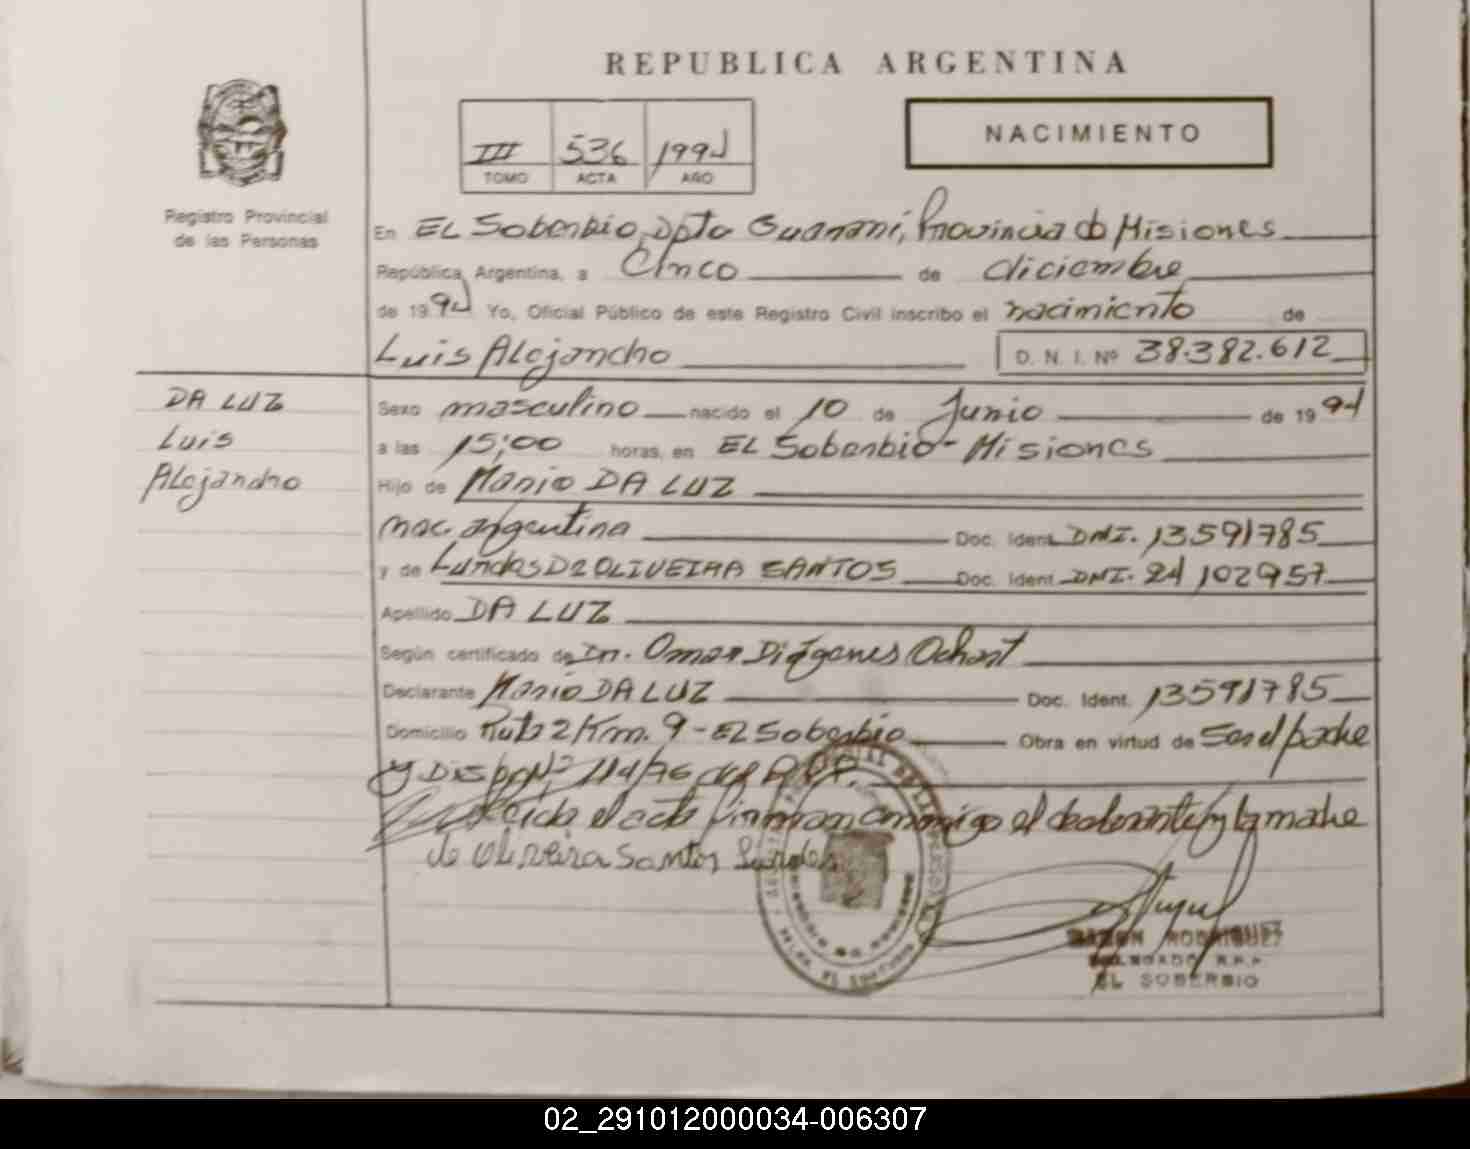 REPUBLICA ARGENTINA
NACIMIENTO
III 536 1994
TOMO ACTA AÑO
Registro Provincial
de las Personas
En EL Soberbio, Dpto Guaraní, Provincia de Misiones
República Argentina, a Cinco de diciembre
de 1994 Yo, Oficial Público de este Registro Civil inscribo el nacimiento de
Luis Alejandro D. N. I. Nº 38.382.612
DA LUZ
Luis
Alejandro
Sexo masculino nacido el 10 de Junio de 1994
a las 15:00 horas, en EL Soberbio - Misiones
Hijo de Mario DA LUZ
nac. argentina Doc. Ident. DNI. 13591785
y de Lurdes DE OLIVEIRA SANTOS Doc. Ident. DNI. 24102957
Apellido DA LUZ
Según certificado de Dr. Omar Diógenes
Declarante Mario DA LUZ Doc. Ident. 13591785
Domicilio Ruta 2 Km. 9 - El Soberbio Obra en virtud de Ser el padre
y Disp. Nº 114/76 del
el acto firman conmigo el declarante y la madre
de Oliveira Santos Lurdes
RAMON RODRIGUEZ
DELEGADO R.P.P.
EL SOBERBIO
02_291012000034-006307